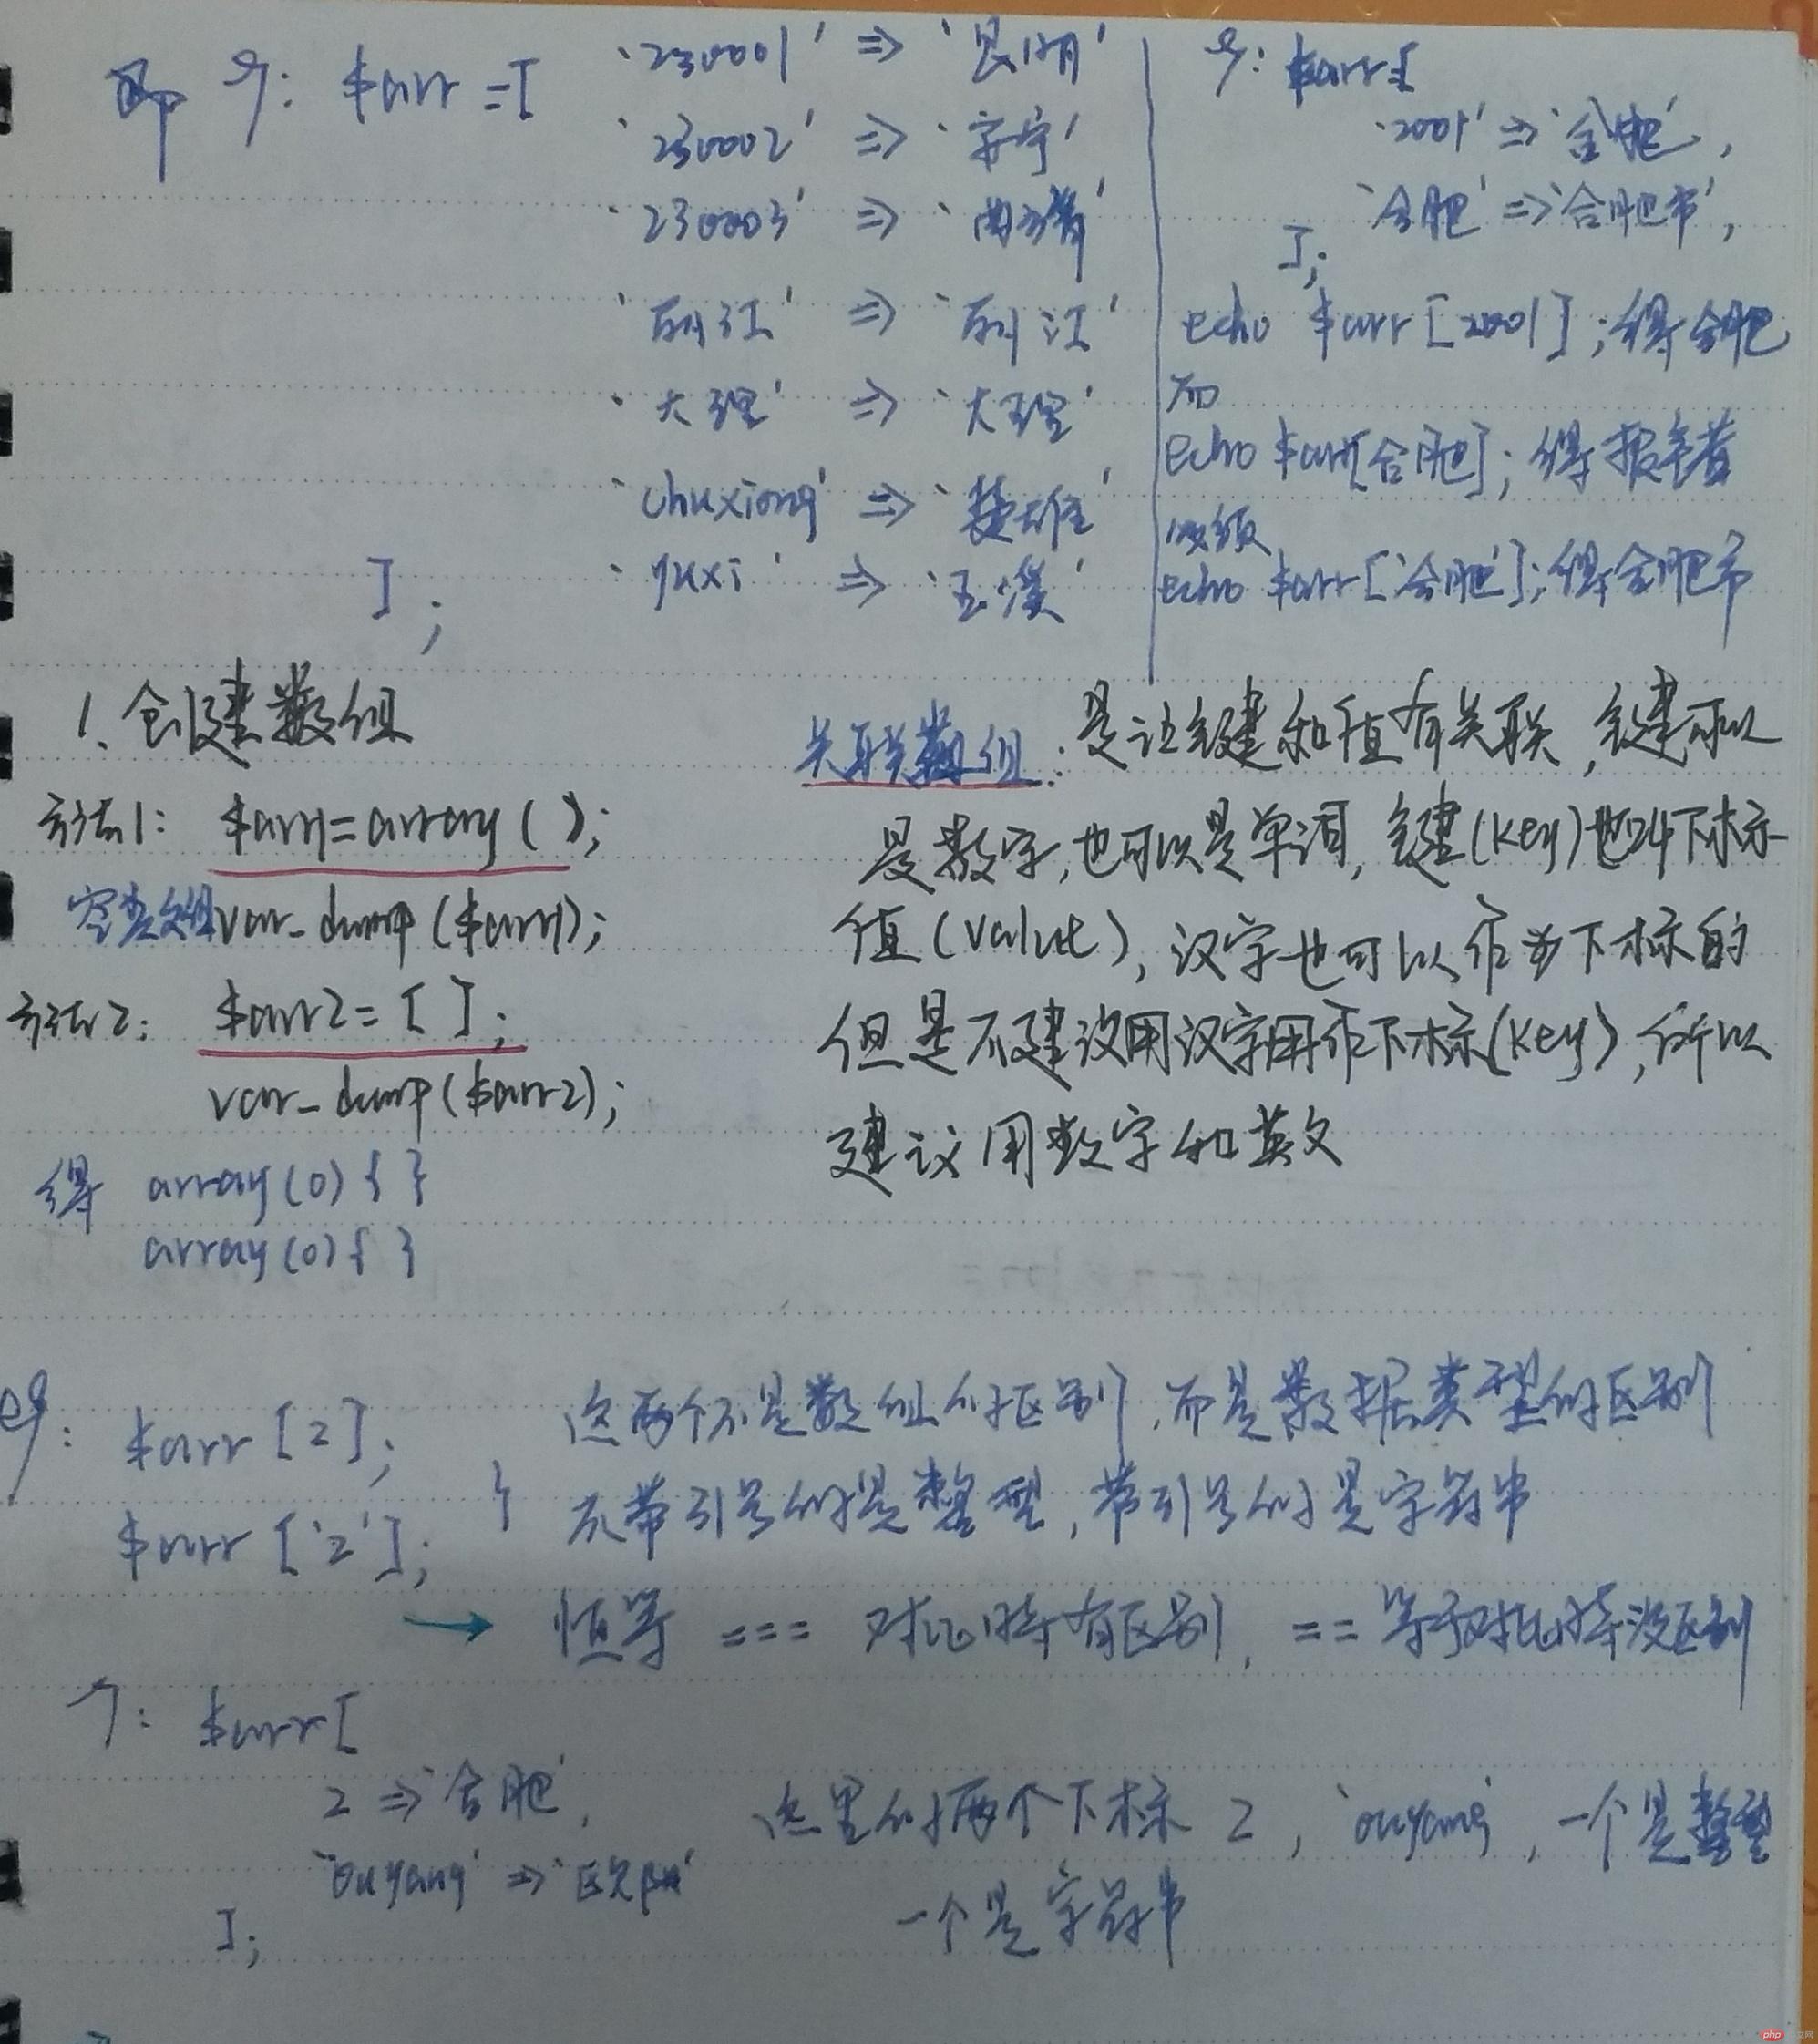 即 eg: $arr = [
'230001' => '昆明'
'230002' => '
'230003' => '曲靖'
'丽江' => '丽江'
'大理' => '大理'
'chuxiong' => '楚雄'
'yuxi' => '玉溪'
];
eg: $arr=[
'2001' => '合肥',
'合肥' => '合肥市',
];
echo $arr[2001]; 得合肥
而
echo $arr[合肥]; 得报错
必须
echo $arr['合肥']; 得合肥市
1、创建数组
方法1: $arr1=array();
空数组 var_dump($arr1);
方法2: $arr2=[];
var_dump($arr2);
得 array(0) { }
array(0) { }
关联数组: 是让键和值有关联,键可以
是数字,也可以是单词,键(key)也叫下标
值(value),汉字也可以作为下标的
但是不建议用汉字用作下标(key),所以
建议用数字和英文
eg: $arr[2];
$arr['2'];
} 这两个不是数组的区别,而是数据类型的区别
不带引号的是整型,带引号的是字符串
→ 恒等 === 对比时有区别, == 等于对比时没区别
$arr[
2 => '合肥',
'ouyang' => '欧阳'
];
这里的两个下标 2, 'ouyang', 一个是整型
一个是字符串
php